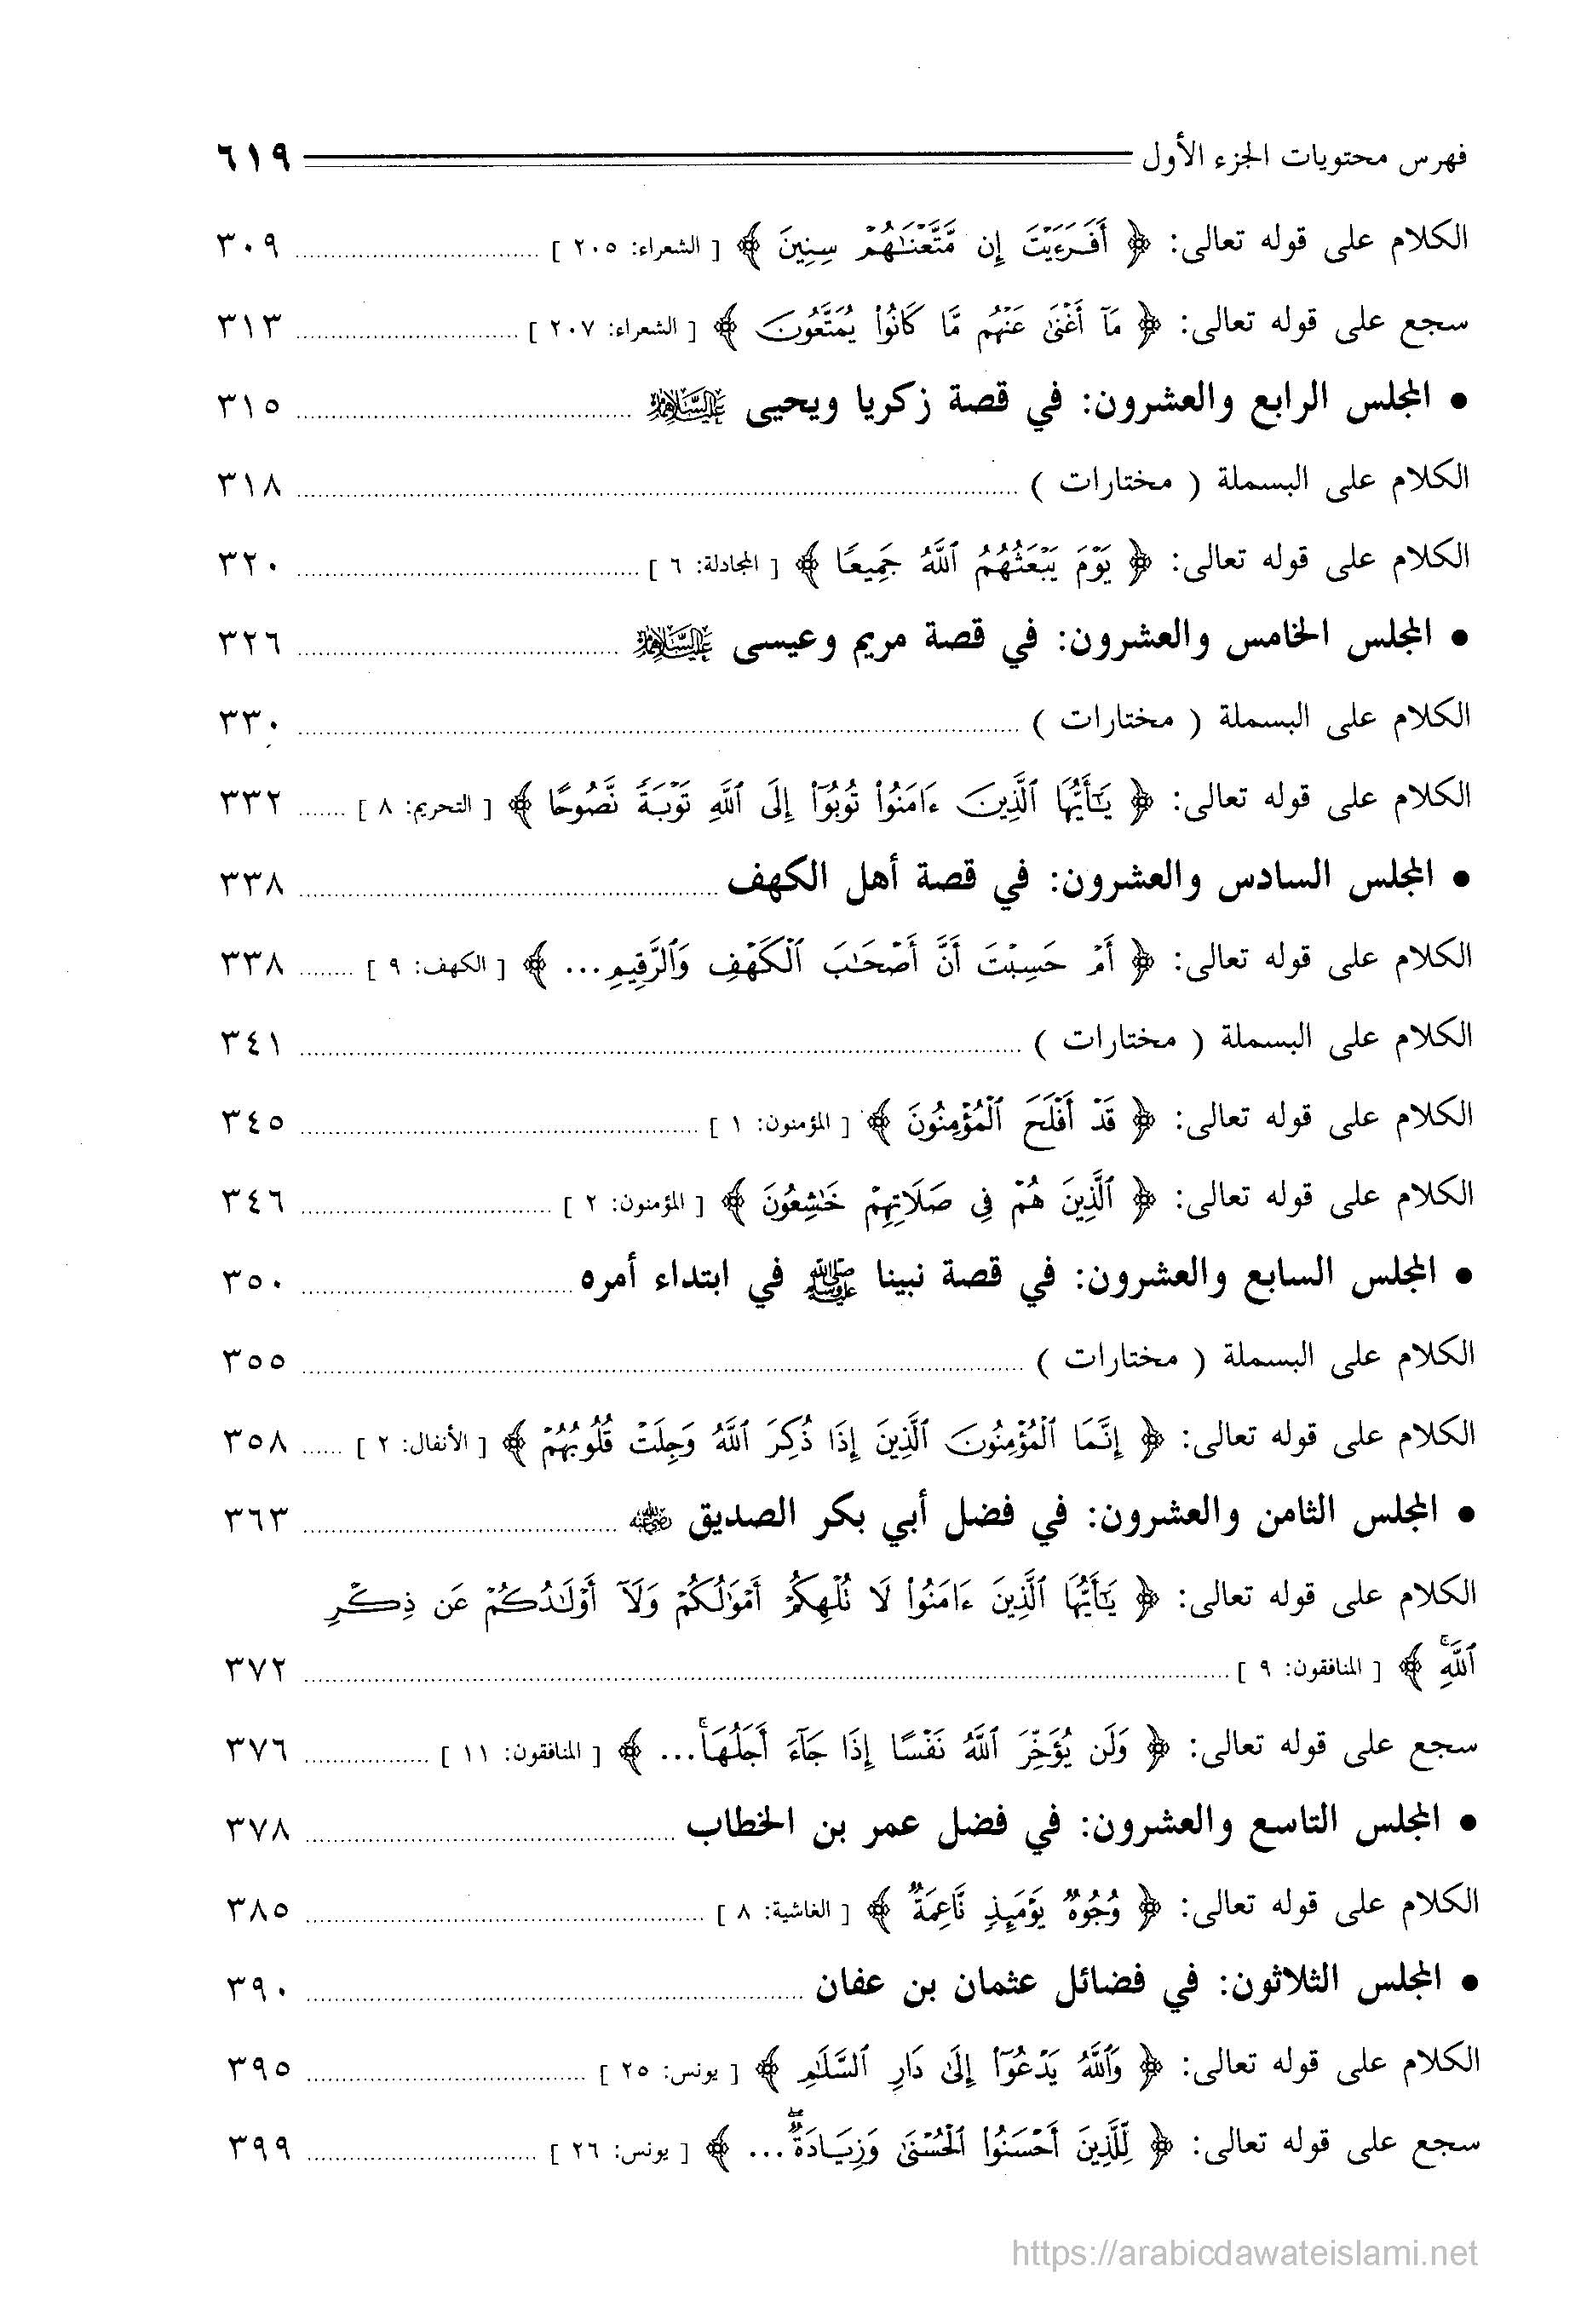 فهرس محتويات الجزء الأول ٦١٩
الكلام على قوله تعالى: ﴿ أَفَرَءَيْتَ إِن مَّتَّعْنَٰهُمْ سِنِينَ ﴾ [ الشعراء: ٢٠٥ ] ٣٠٩
سجع على قوله تعالى: ﴿ مَآ أَغْنَىٰ عَنْهُم مَّا كَانُوا۟ يُمَتَّعُونَ ﴾ [ الشعراء: ٢٠٧ ] ٣١٣
● المجلس الرابع والعشرون: في قصة زكريا ويحيى عليهما السلام ٣١٥
الكلام على البسملة ( مختارات ) ٣١٨
الكلام على قوله تعالى: ﴿ يَوْمَ يَبْعَثُهُمُ ٱللَّهُ جَمِيعًا ﴾ [ المجادلة: ٦ ] ٣٢٠
● المجلس الخامس والعشرون: في قصة مريم وعيسى عليهما السلام ٣٢٦
الكلام على البسملة ( مختارات ) ٣٣٠
الكلام على قوله تعالى: ﴿ يَٰٓأَيُّهَا ٱلَّذِينَ ءَامَنُوا۟ تُوبُوٓا۟ إِلَى ٱللَّهِ تَوْبَةً نَّصُوحًا ﴾ [ التحريم: ٨ ] ٣٣٢
● المجلس السادس والعشرون: في قصة أهل الكهف ٣٣٨
الكلام على قوله تعالى: ﴿ أَمْ حَسِبْتَ أَنَّ أَصْحَٰبَ ٱلْكَهْفِ وَٱلرَّقِيمِ... ﴾ [ الكهف: ٩ ] ٣٣٨
الكلام على البسملة ( مختارات ) ٣٤١
الكلام على قوله تعالى: ﴿ قَدْ أَفْلَحَ ٱلْمُؤْمِنُونَ ﴾ [ المؤمنون: ١ ] ٣٤٥
الكلام على قوله تعالى: ﴿ ٱلَّذِينَ هُمْ فِى صَلَاتِهِمْ خَٰشِعُونَ ﴾ [ المؤمنون: ٢ ] ٣٤٦
● المجلس السابع والعشرون: في قصة نبينا ﷺ في ابتداء أمره ٣٥٠
الكلام على البسملة ( مختارات ) ٣٥٥
الكلام على قوله تعالى: ﴿ إِنَّمَا ٱلْمُؤْمِنُونَ ٱلَّذِينَ إِذَا ذُكِرَ ٱللَّهُ وَجِلَتْ قُلُوبُهُمْ ﴾ [ الأنفال: ٢ ] ٣٥٨
● المجلس الثامن والعشرون: في فضل أبي بكر الصديق رضي الله عنه ٣٦٣
الكلام على قوله تعالى: ﴿ يَٰٓأَيُّهَا ٱلَّذِينَ ءَامَنُوا۟ لَا تُلْهِكُمْ أَمْوَٰلُكُمْ وَلَآ أَوْلَٰدُكُمْ عَن ذِكْرِ
ٱللَّهِۚ ﴾ [ المنافقون: ٩ ] ٣٧٢
سجع على قوله تعالى: ﴿ وَلَن يُؤَخِّرَ ٱللَّهُ نَفْسًا إِذَا جَآءَ أَجَلُهَاۚ... ﴾ [ المنافقون: ١١ ] ٣٧٦
● المجلس التاسع والعشرون: في فضل عمر بن الخطاب ٣٧٨
الكلام على قوله تعالى: ﴿ وُجُوهٌ يَوْمَئِذٍ نَّاعِمَةٌ ﴾ [ الغاشية: ٨ ] ٣٨٥
● المجلس الثلاثون: في فضائل عثمان بن عفان ٣٩٠
الكلام على قوله تعالى: ﴿ وَٱللَّهُ يَدْعُوٓا۟ إِلَىٰ دَارِ ٱلسَّلَٰمِ ﴾ [ يونس: ٢٥ ] ٣٩٥
سجع على قوله تعالى: ﴿ لِّلَّذِينَ أَحْسَنُوا۟ ٱلْحُسْنَىٰ وَزِيَادَةٌۖ... ﴾ [ يونس: ٢٦ ] ٣٩٩
https://arabicdawateislami.net